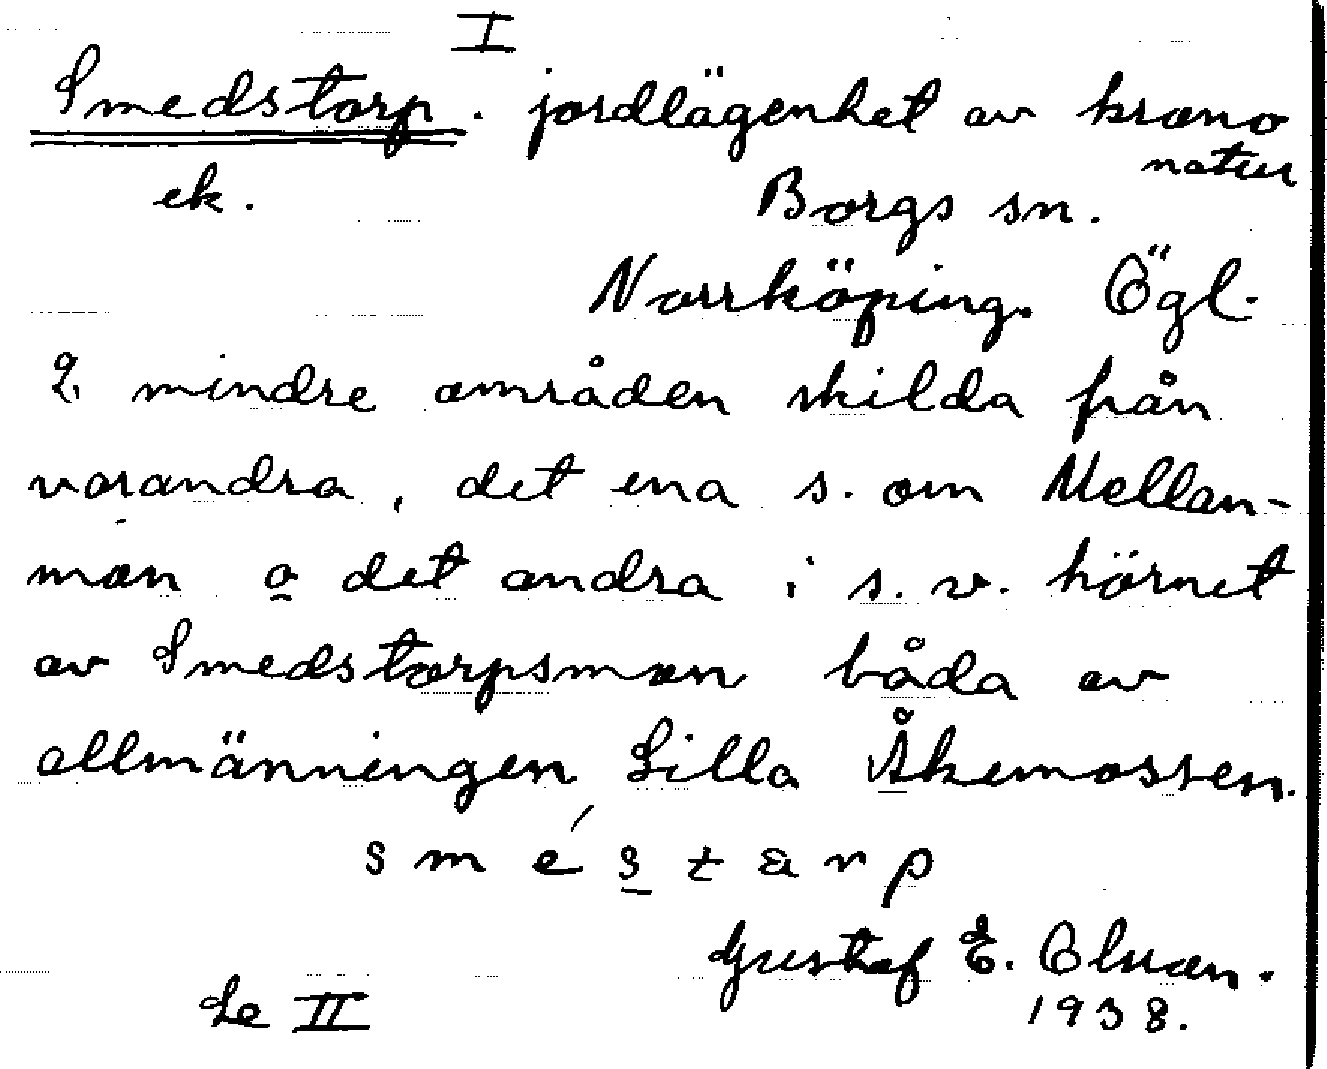 I
Smedstorp. jordlägenhet av krono
natur
ek. Borgs sn.
Norrköping. Ögl.
2 mindre områden skilda från
varandra, det ena s. om Mellan-
mon o det andra i s. v. hörnet
av Smedstorpsmon båda av
allmänningen Lilla Åkemossen.
smés̲tarp
Gustaf E. Olson.
1938.
Se II